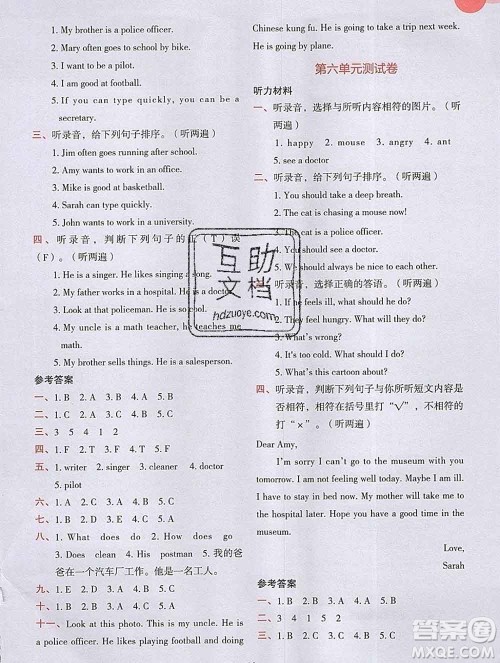 1. My brother is a police officer.
2. Mary often goes to school by bike.
3. My father is a
4. I am good at football.
5. If you can type quickly, you can be a
secretary.
三、听录音，给下列句子排序。（听两遍）
1. Jim often goes running after school.
2. Amy wants to work in an office.
3. Mike is good at basketball.
4. Sarah can type quickly.
5. John wants to work in a university.
四、听录音，判断下列句子的正（T）误
（F）。（听两遍）
1. He is a singer. He likes singing a song.
2. My father works in a hospital. He is a doctor.
3. Look at that policeman. He is so cool.
4. My uncle is a math teacher, he teaches me
math.
5. My brother sells things. He is a salesperson.
参考答案
一、1. B 2. A 3. B 4. A 5. B
二、1. B 2. A 3. B 4. A 5. C
三、3 5 4 1 2
四、1. F 2. T
五、1. writer 2. singer 3. cleaner 4. doctor
5. pilot
六、1. A 2. C 3. A 4. B 5. C
七、1. B 2. A 3. B 4. C 5. A
八、1. What does 2. How does go
3. Does clean 4. His postman 5. 我的爸
爸在一个汽车厂工作。他是一名工人。
九、1. B 2. E 3. D 4. A 5. C
十、1. B 2. A 3. A 4. B 5. B
十一、Look at this photo. This is my brother. He is
a police officer. He likes playing football and doing
Chinese kung fu. He is going to take a trip next week.
He is going by plane.
第六单元测试卷
听力材料
一、听录音，选择与所听内容相符的图片。（听
两遍）
1. happy 2. mouse 3. angry 4. ant
5. see a doctor
二、听录音，给下列句子排序。（听两遍）
1. You should take a deep breath.
2. The cat is chasing a mouse now!
3. The cat is a police officer.
4. You should see a doctor.
5. You should always be nice to each other.
三、听录音，选择正确的答语。（听两遍）
1. If he feels ill, what should he do?
2. They feel hungry. What will they do?
3. What's wrong?
4. It's too cold. What should I do?
5. What's this cartoon about?
四、听录音，判断下列句子与你所听短文内容是
否相符，相符的在括号里打“√”，不相符的
打“×”。（听两遍）
Dear Amy,
I'm sorry I can't go to the museum with you
tomorrow. I am not feeling well today. Maybe I am ill.
I have to stay in bed now. My mother will take me to
the hospital later. Hope you enjoy your time in the
museum.
Love,
Sarah
参考答案
一、1. B 2. B
二、2 4 1
三、1. B 2. A 3. B 4. B 5. A
互助
文档
hdzuoye.com
答案圈
MXQE.COM